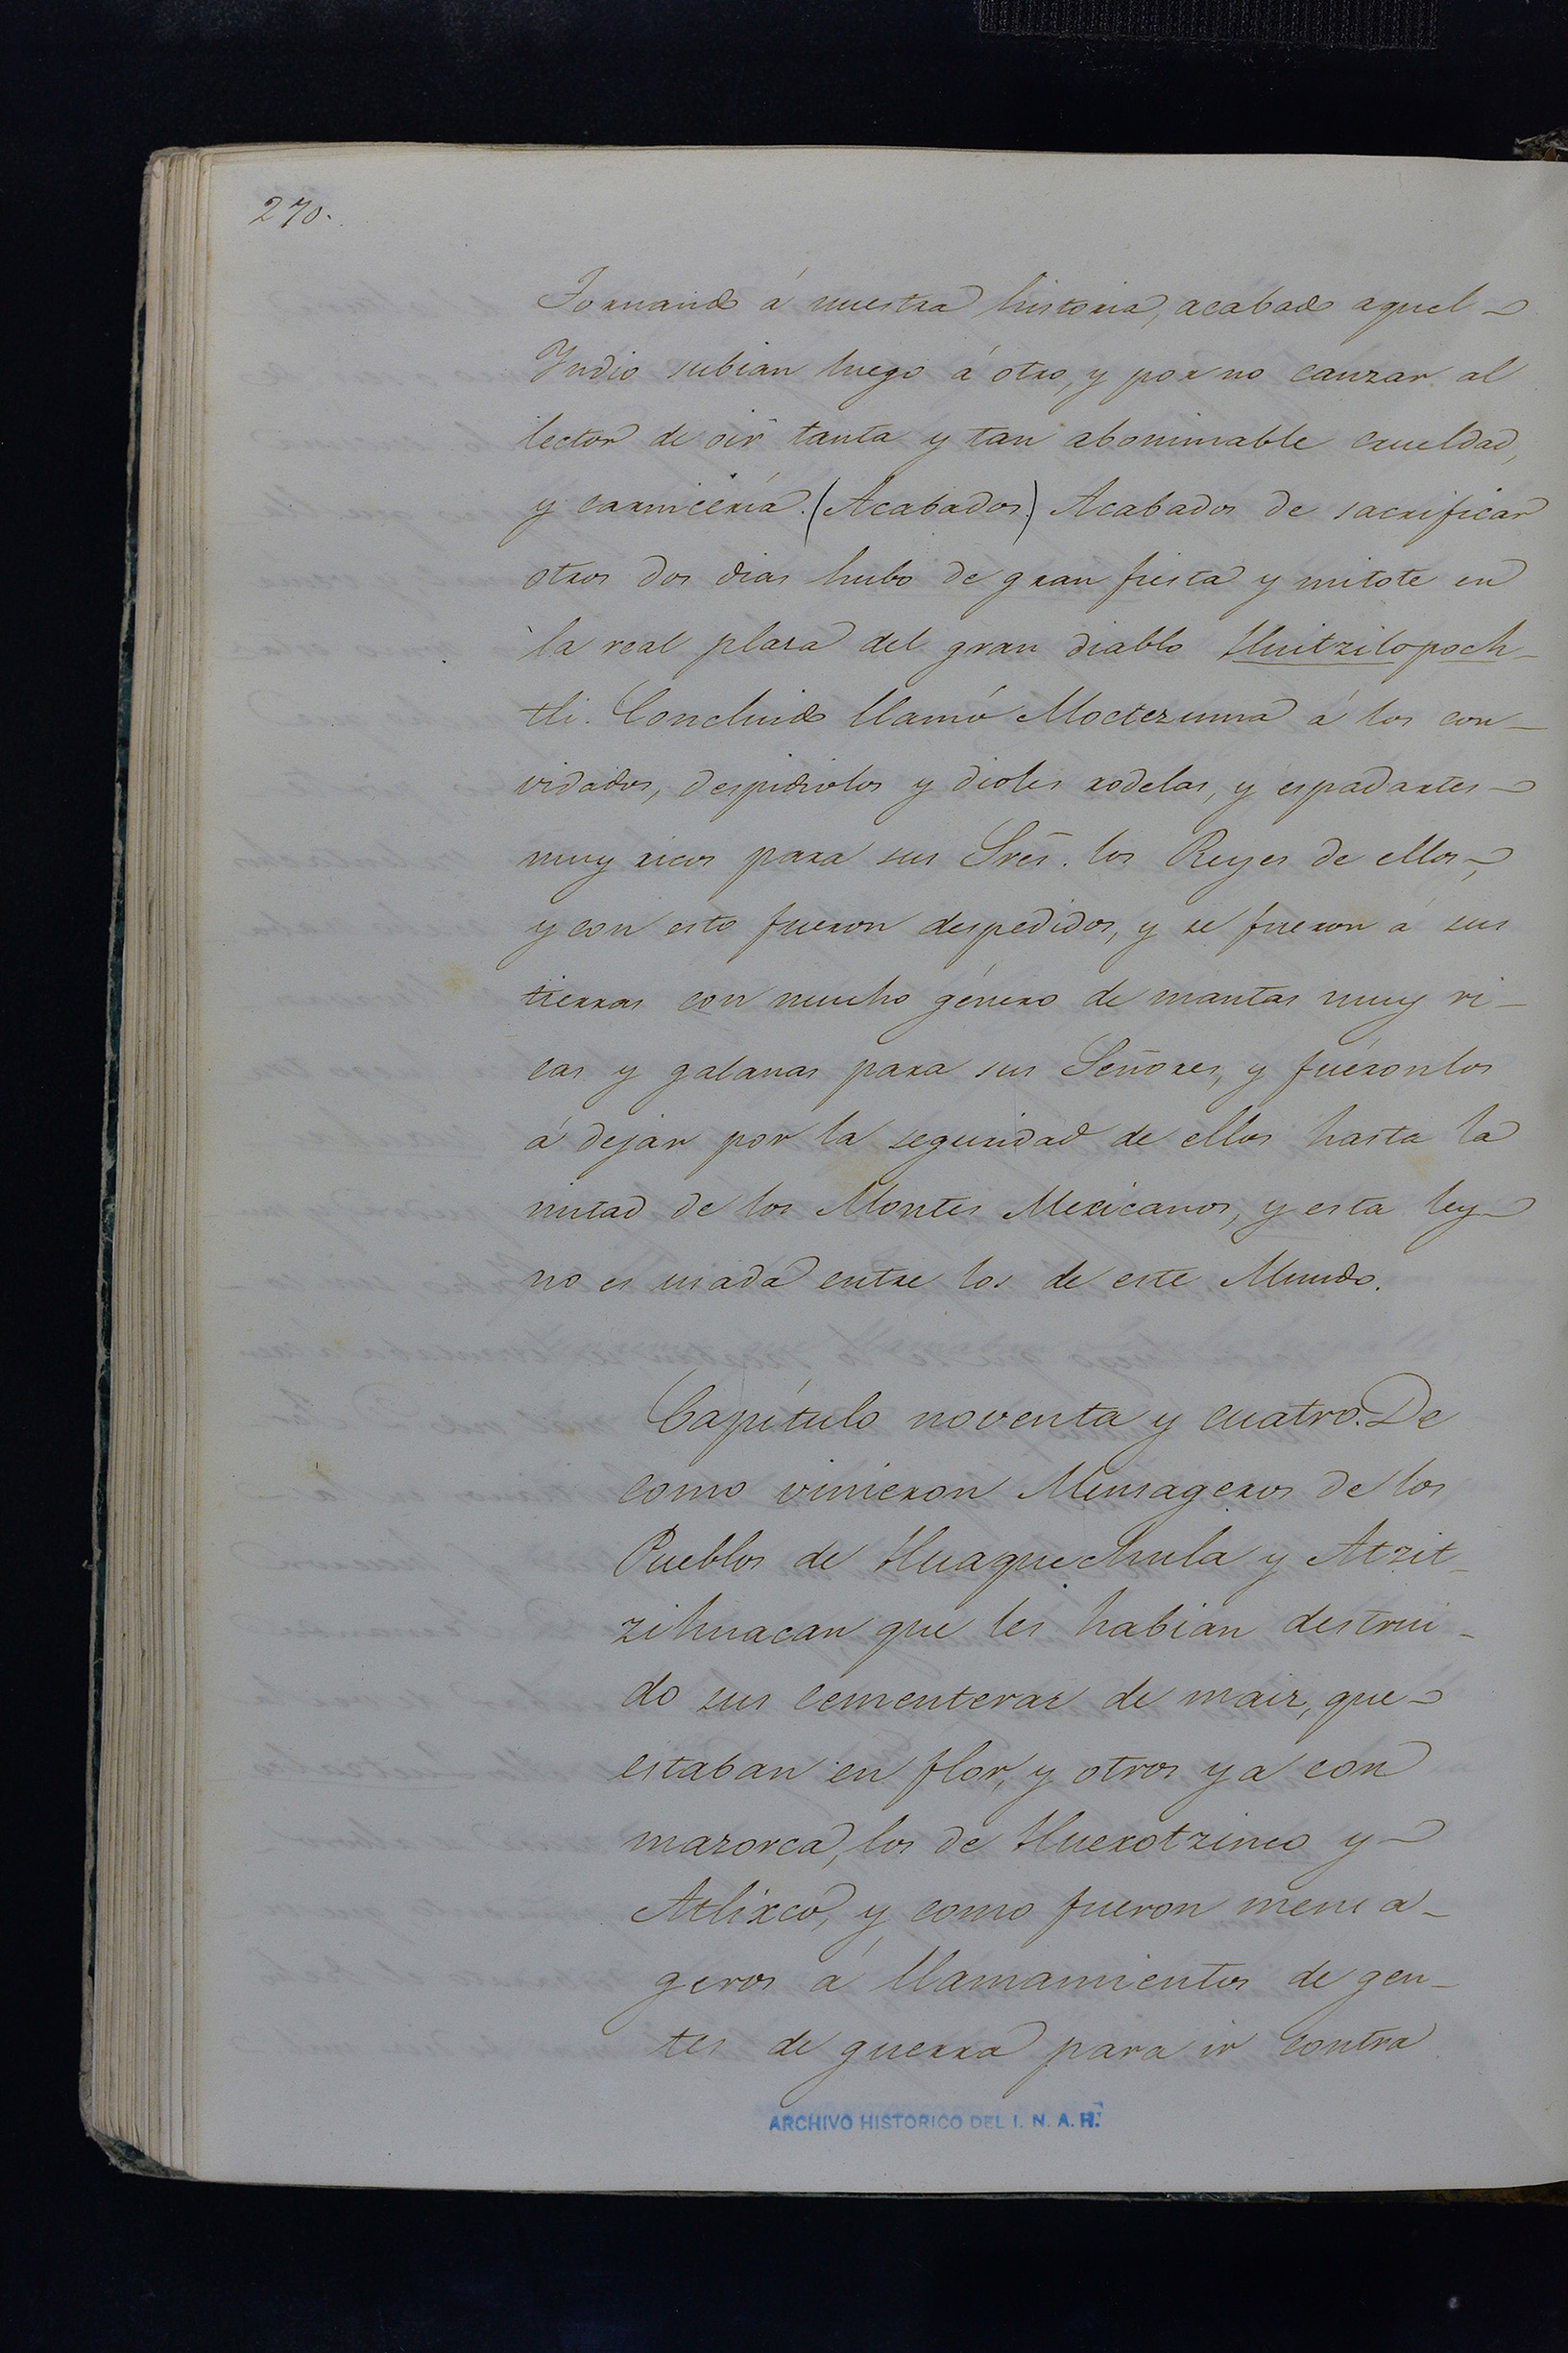 270.
Tornando á nuestra historia, acabado aquel
Yndio subian luego á otro, y por no canzar al
lector de oir tanta y tan abominable crueldad,
y carnicería. (Acabados.) Acabados de sacrificar
otros dos dias hubo de gran fiesta y mitote en
la real plaza del gran diablo Huitzilopoch-
tli. Concluido llamó Moctezuma á los con-
vidados, despidiolos y dioles rodelas, y espadartes
muy ricos para sus Sres. los Reyes de ellos,
y con esto fueron despedidos, y se fueron á sus
tierras con mucho género de mantas muy ri-
cas y galanas para sus Señores, y fuéronlos
á dejar por la seguridad de ellos hasta la
mitad de los Montes Mexicanos, y esta ley
no es usada entre los de este Mundo.
Capítulo noventa y cuatro. De
como vinieron Mensageros de los
Pueblos de Huaquechula y Atzit-
zihuacan que les habian destrui-
do sus cementeras de maiz, que
estaban en flor, y otros ya con
mazorca, los de Huexotzinco y
Atlixco, y como fueron mensa-
geros á llamamientos de gen-
tes de guerra para ir contra
ARCHIVO HISTORICO DEL I. N. A. H.